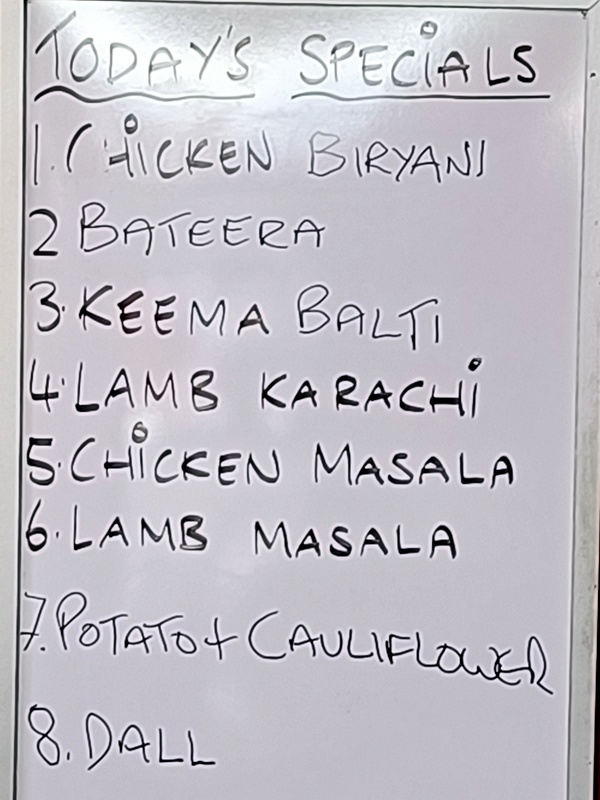 TODAY'S SPECIALS
1. CHICKEN BIRYANI
2 BATEERA
3. KEEMA BALTI
4. LAMB KARACHI
5. CHICKEN MASALA
6. LAMB MASALA
7. POTATO + CAULIFLOWER
8. DALL